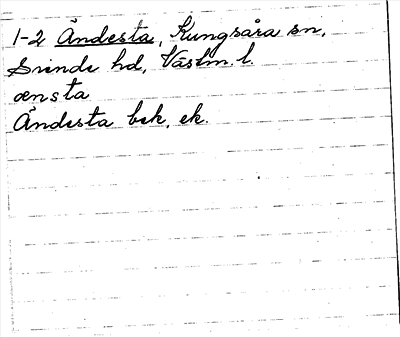 1-2 Ändesta, Kungsåra sn,
Siende hd, Västm. l.
ænsta
Ändesta bek, ek.